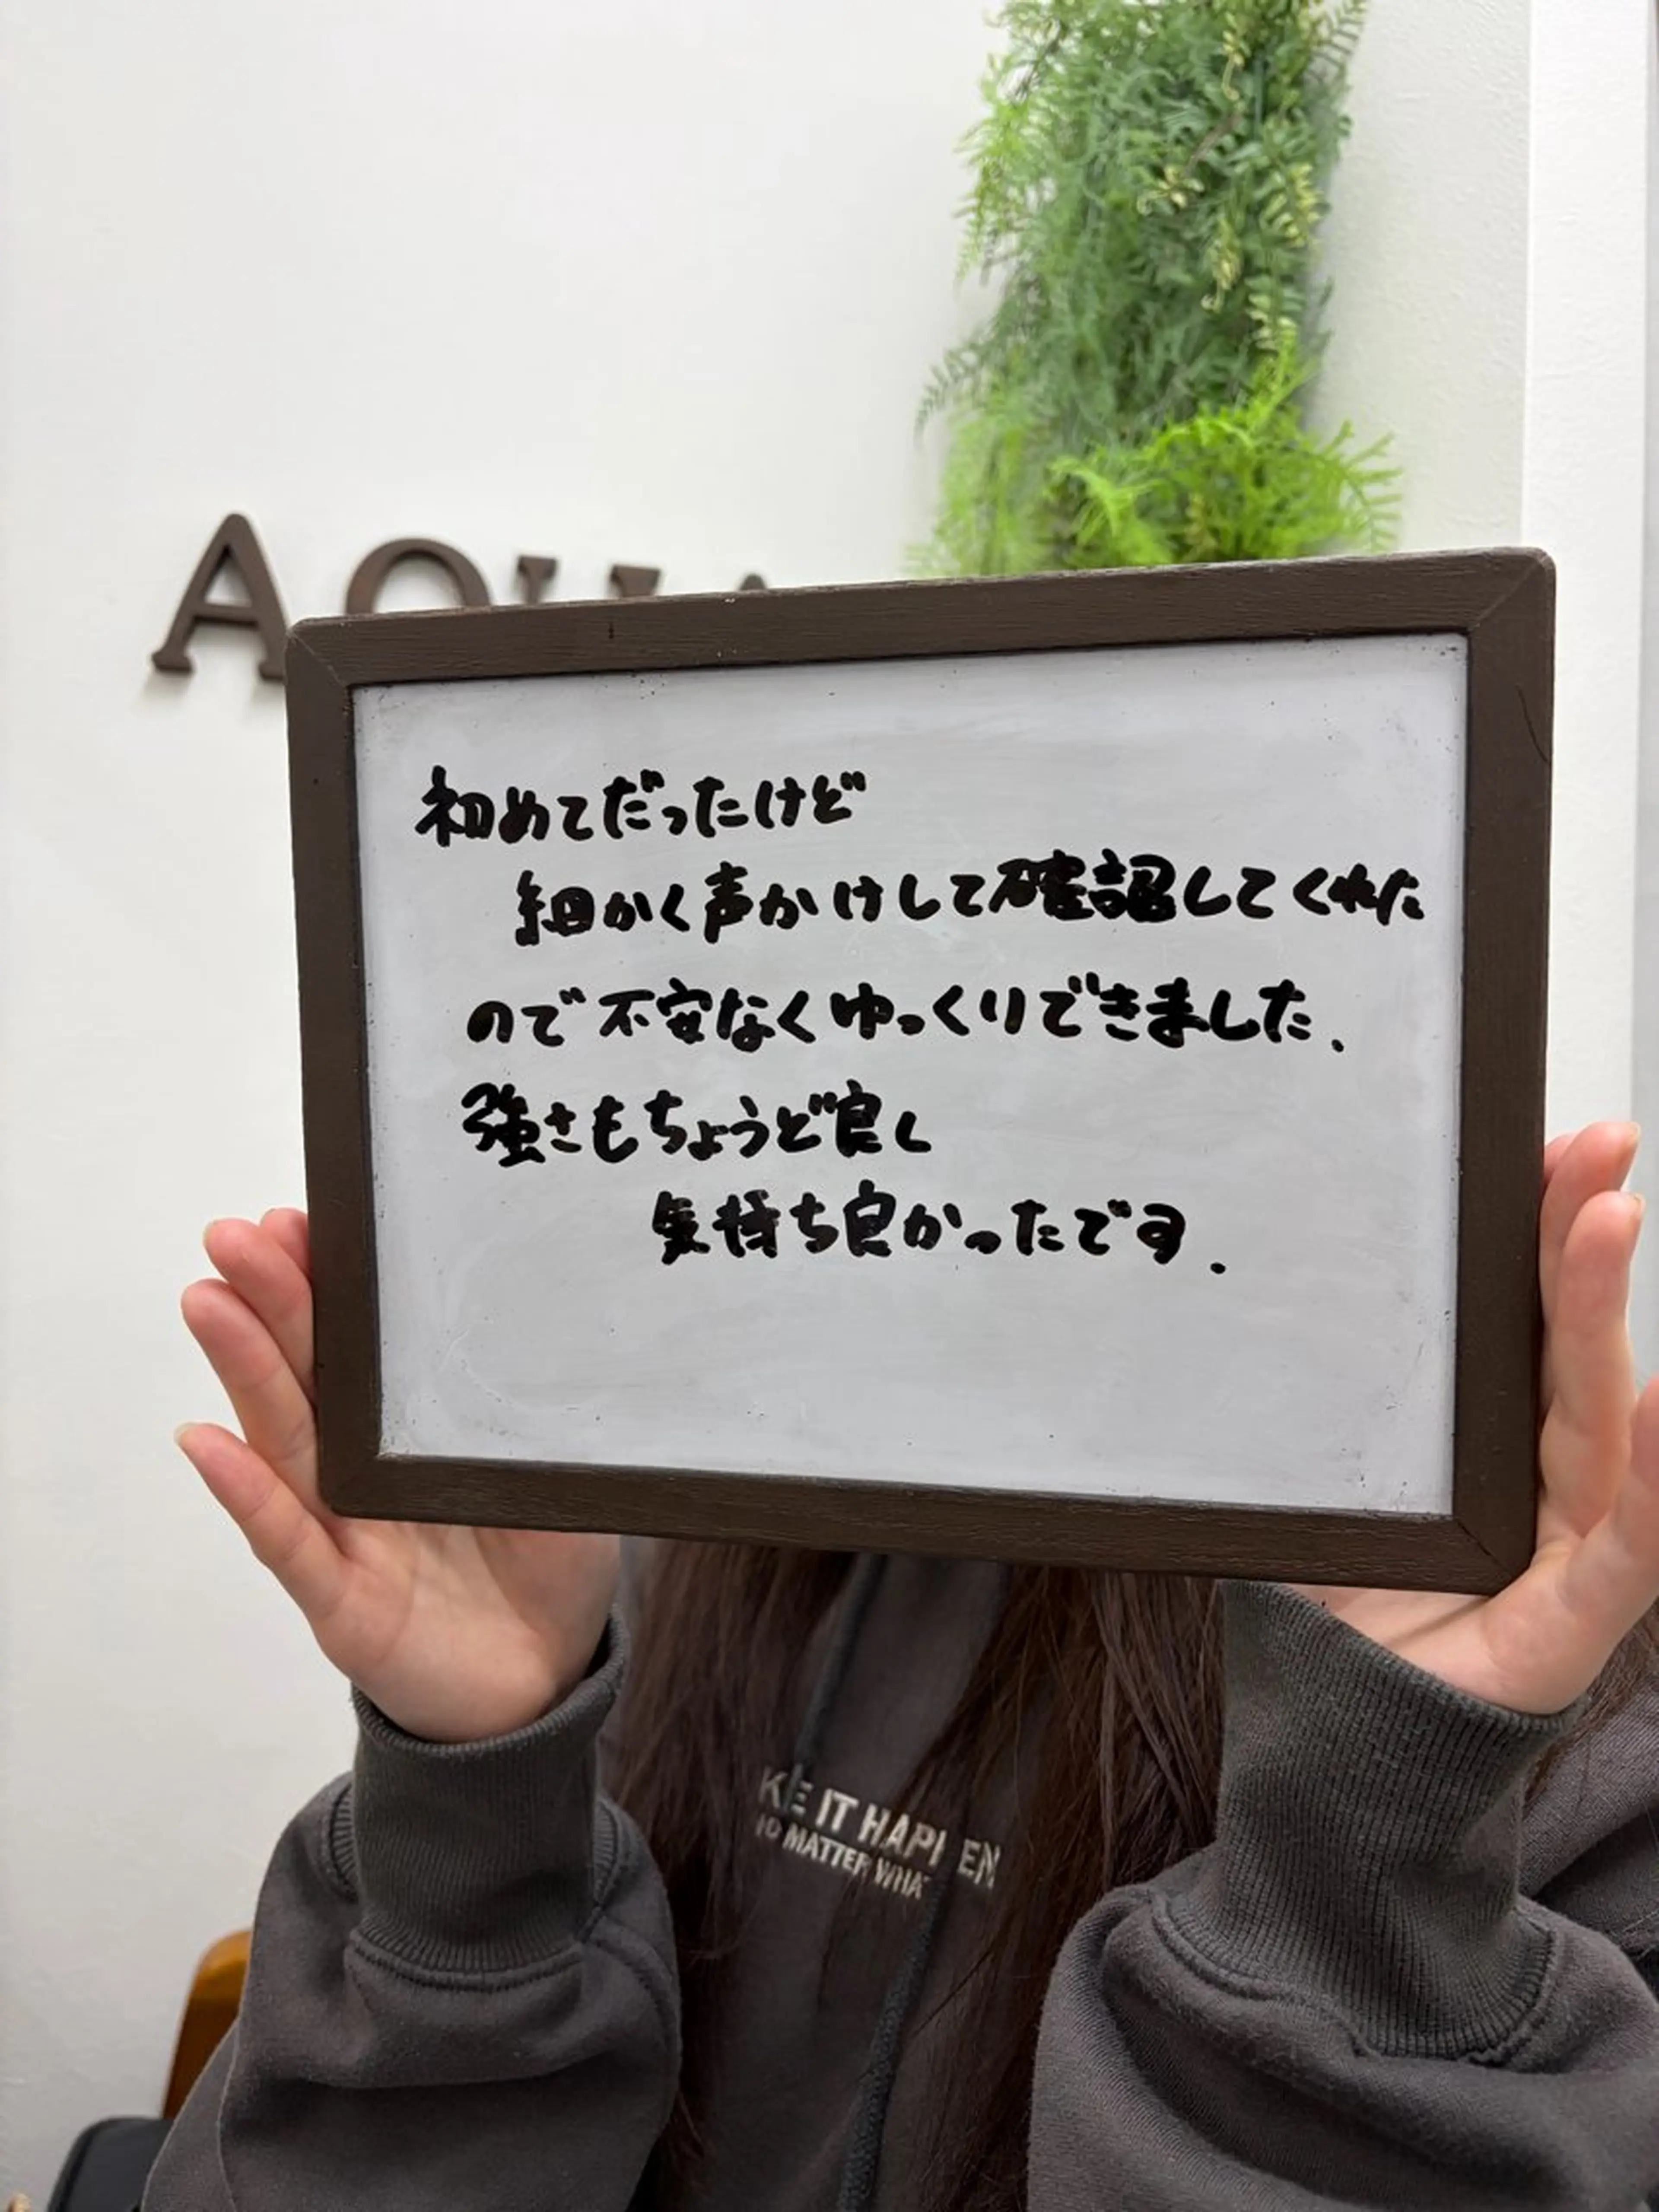 初めてだったけど
細かく声かけして確認してくれた
ので不安なくゆっくりできました.
強さもちょうど良し
気持ち良かったです.
KE IT HAPPEN
MATTER WHAT